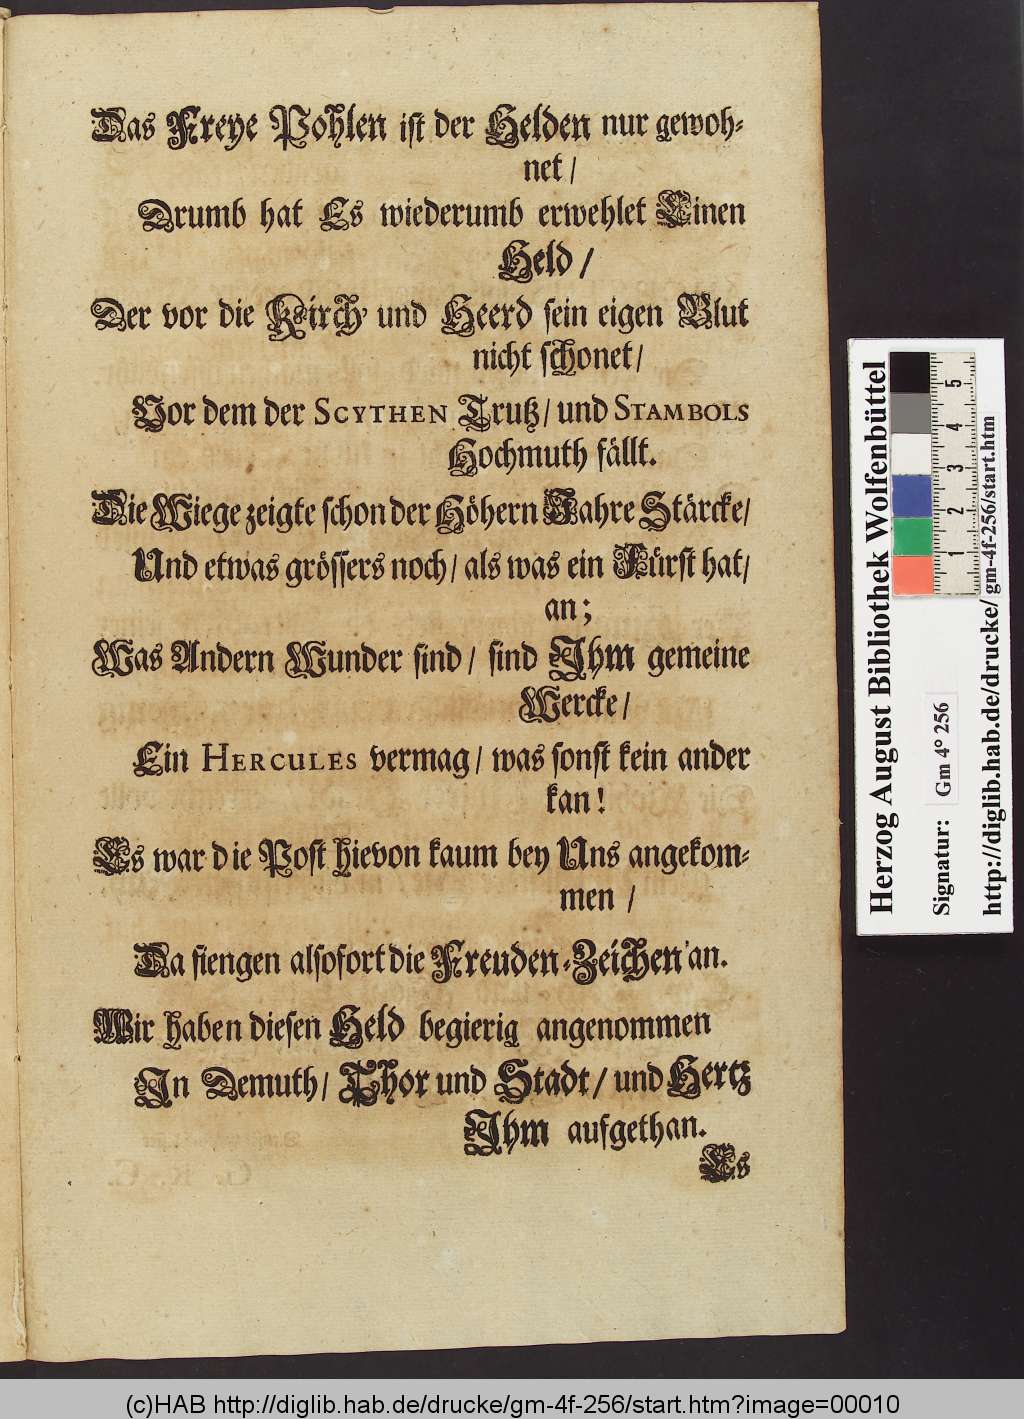 Das Freye Pohlen ist der Helden nur gewoh-
net /
Drumb hat Es wiederumb erwehlet Einen
Held /
Der vor die Kirch' und Heerd sein eigen Blut
nicht schonet /
Vor dem der SCYTHEN Trutz / und STAMBOLS
Hochmuth fällt.
Die Wiege zeigte schon der Höhern Jahre Stärcke /
Und etwas grössers noch / als was ein Fürst hat /
an ;
Was Andern Wunder sind / sind Ihm gemeine
Wercke /
Ein HERCULES vermag / was sonst kein ander
kan !
Es war die Post hievon kaum bey Uns angekom-
men /
Da fiengen alsofort die Freuden-Zeichen an.
Wir haben diesen Held begierig angenommen
In Demuth / Thor und Stadt / und Hertz
Ihm aufgethan.
Es
Herzog August Bibliothek Wolfenbüttel
Signatur: Gm 4° 256
http://diglib.hab.de/drucke/ gm-4f-256/start.htm
1 2 3 4 5
(c)HAB http://diglib.hab.de/drucke/gm-4f-256/start.htm?image=00010